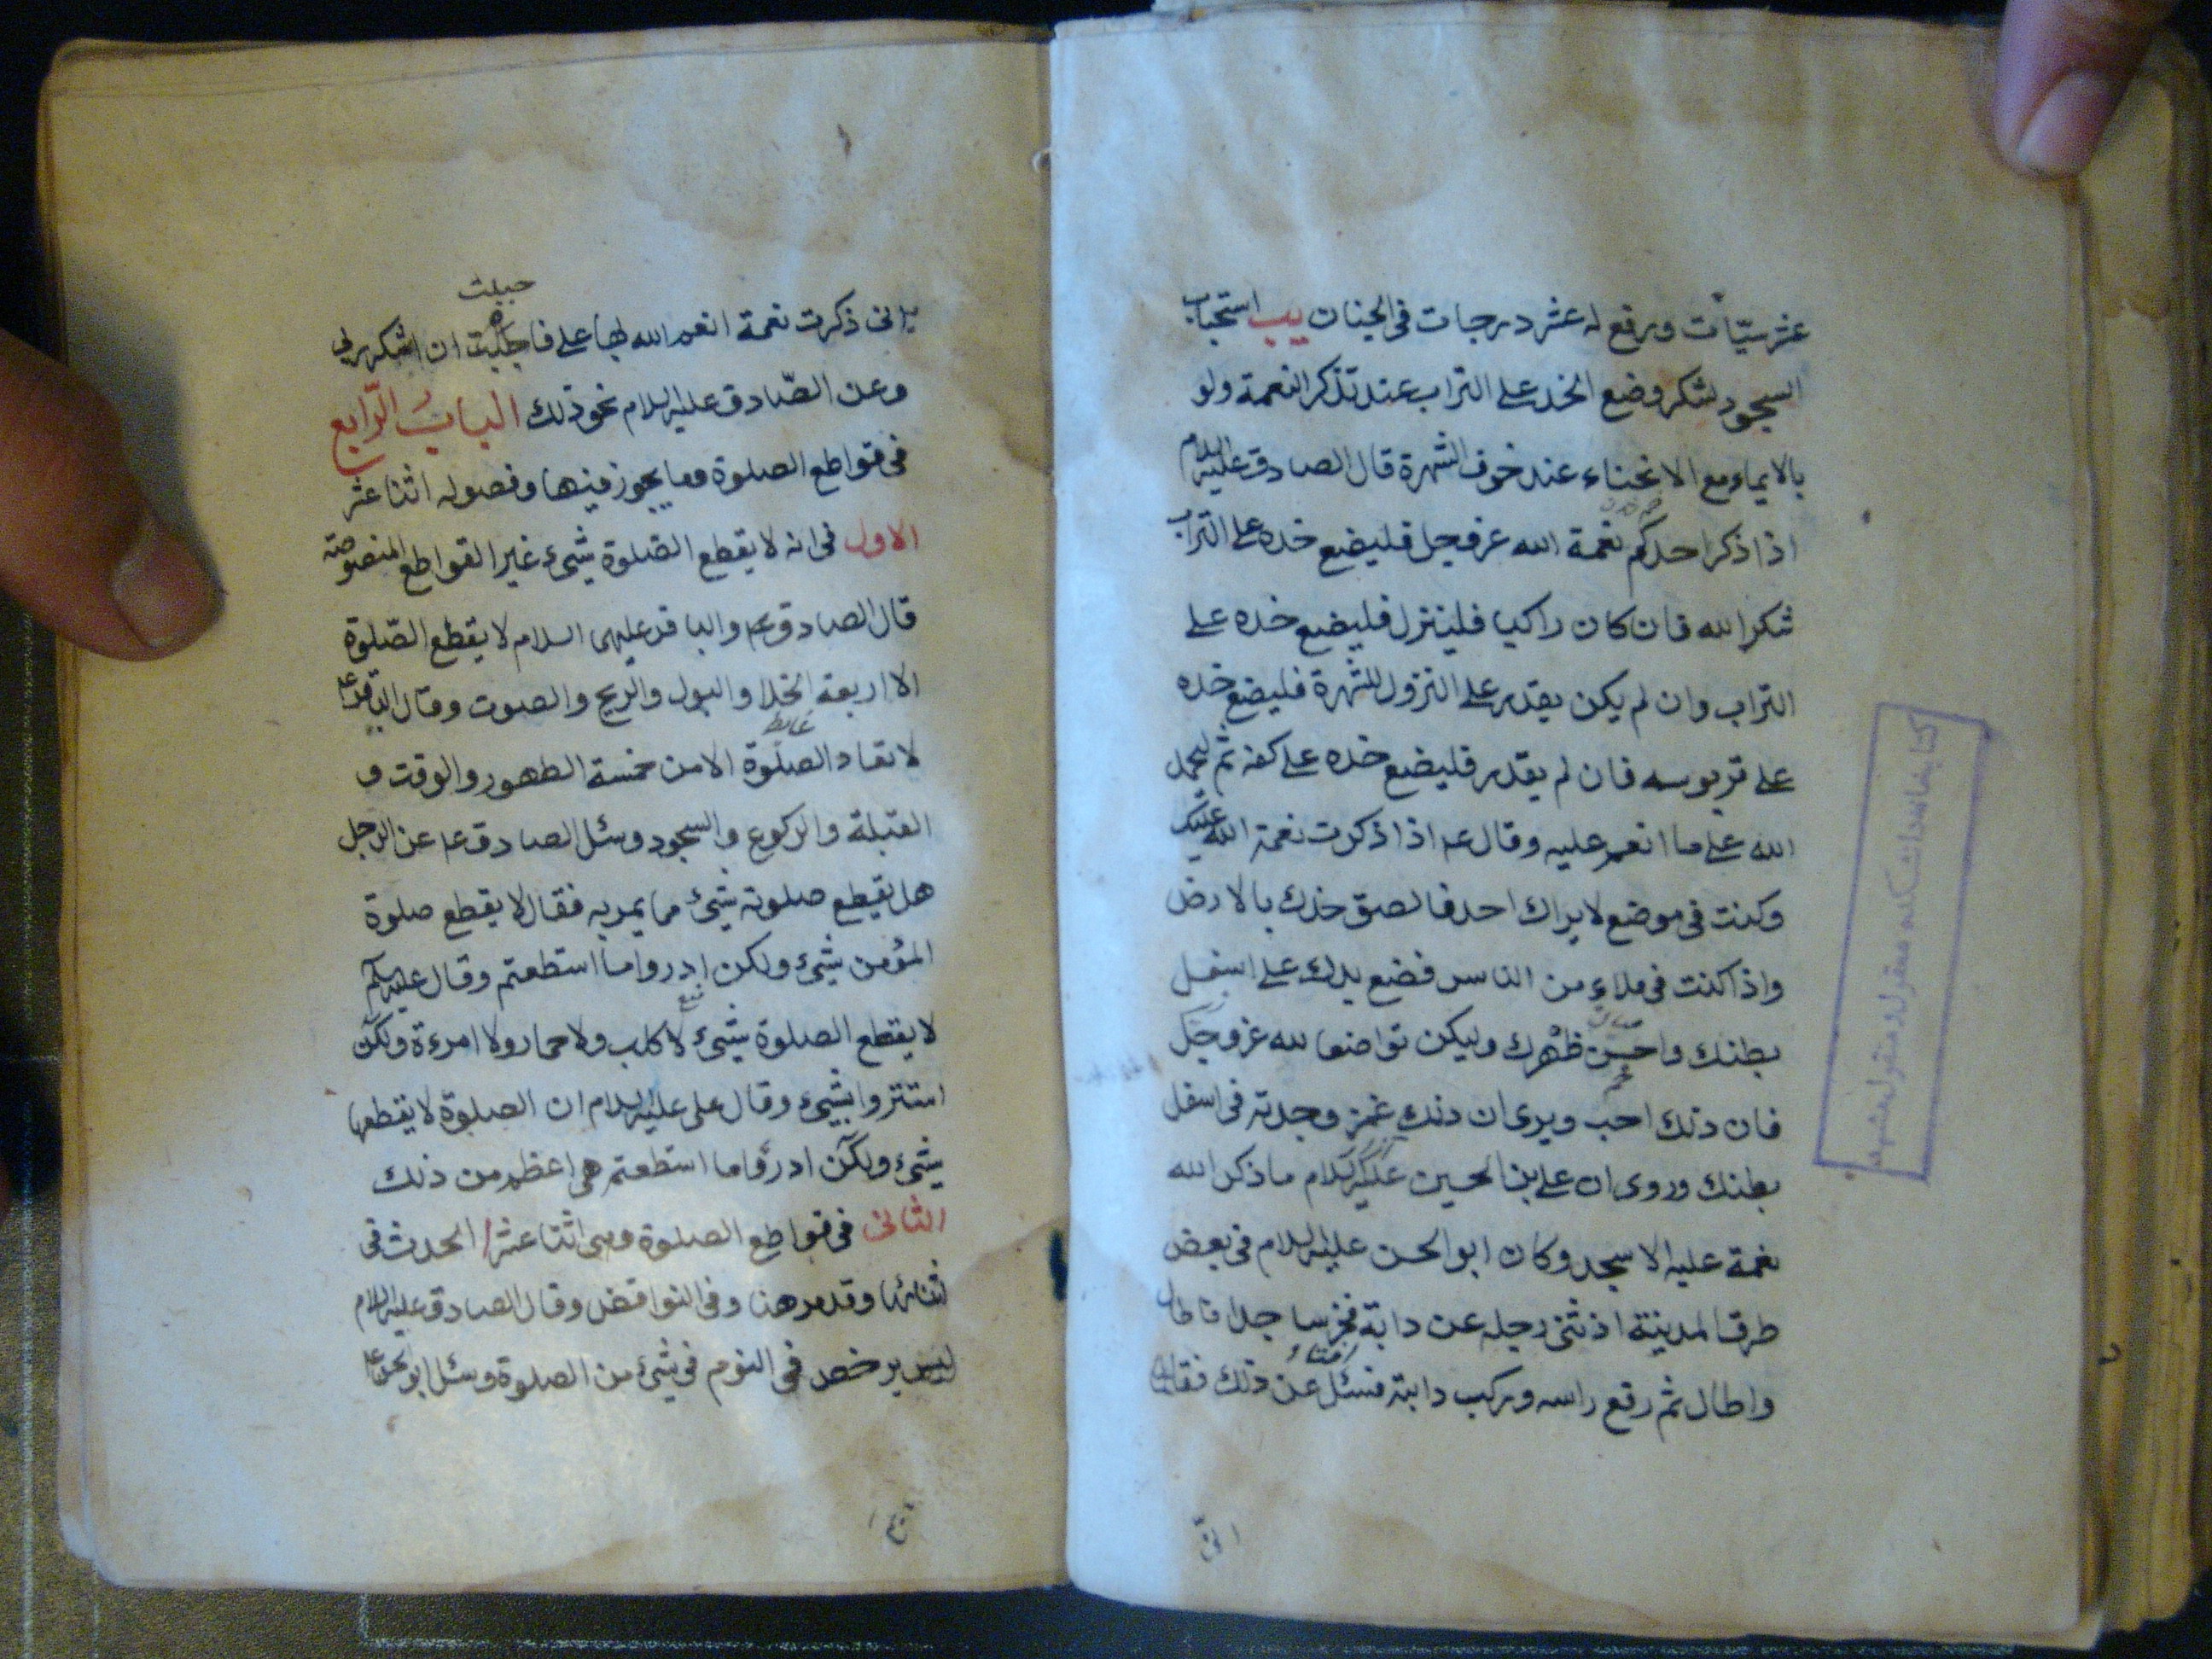 عشر سيّئات ورفع له عشر درجات في الجنان يب استحباب
السجود لشكر وضع الخد على التراب عند تذكر النعمة ولو
بالايماء مع الانحناء عند خوف الشهرة قال الصادق عليه السلام
اذا ذكر احدكم نعمة الله عز وجل فليضع خده على التراب
شكرا لله فان كان راكبا فلينزل فليضع خده على
التراب وان لم يكن يقدر على النزول للشهرة فليضع خده
على قربوسه فان لم يقدر فليضع خده على كفه ثم ليحمد
الله على ما انعم عليه وقال ع اذا ذكرت نعمة الله عليك
وكنت في موضع لا يراك احد فالصق خدك بالارض
واذا كنت في ملاء من الناس فضع يدك على اسفل
بطنك واحسن ظهرك وليكن تواضعا لله عز وجل
فان ذلك احب ويرى ان ذلك غمز وجدته في اسفل
بطنك وروى ان على بن الحسين عليه السلام ما ذكر الله
نعمة عليه الا سجد وكان ابو الحسن عليه السلام في بعض
طرق المدينة اذ ثنى رجله عن دابة فخر ساجدا فاطال
واطال ثم رفع راسه وركب دابته فسئل عن ذلك فقال
انى
حببت
انى ذكرت نعمة انعم الله بها على فاحببت ان اشكر ربي
وعن الصّادق عليه السلام نحو ذلك الباب الرّابع
في قواطع الصلوة وما يجوز فيها وفصوله اثنا عشر
الاول في انه لا يقطع الصّلوة شئ غير القواطع المنصوصة
قال الصادق ع والباقر عليهما السلام لا يقطع الصّلوة
الا اربعة الخلا والبول والريح والصوت وقال الباقر ع
غائط
لا تعاد الصلوة الا من خمسة الطهور والوقت و
القبلة والركوع والسجود وسئل الصادق ع عن الرجل
هل يقطع صلوته شئ مما يمر به فقال لا يقطع صلوة
المؤمن شئ ولكن ادروا ما استطعتم وقال عليه السلام
لا يقطع الصلوة شئ لا كلب ولا حمار ولا امرءة ولكن
استتروا بشئ وقال على عليه السلام ان الصلوة لا يقطعها
شئ ولكن ادرؤا ما استطعتم هي اعظم من ذلك
الثانى في قواطع الصلوة وهي اثنا عشر ا الحدث في
اثنائها وقد مر هنا وفي النواقض وقال الصادق عليه السلام
ليس يرخص في النوم في شئ من الصلوة وسئل ابو الحسن ع